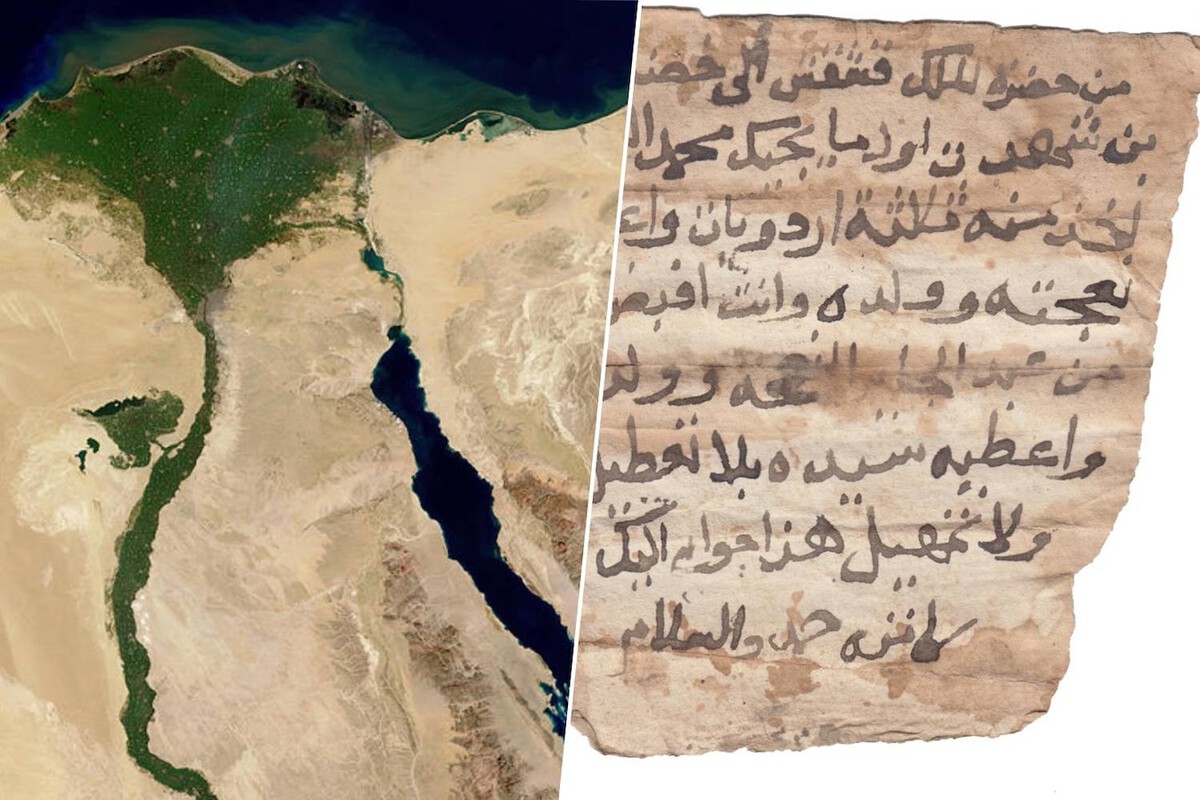 من حضره الملك قشقش الى
بن شنهد ن اول ما يجيك محمد
منه ثلاثة اردويات
نعجته وولده وانت اقبض
من عبد الجابر النعجه وولد
واعطيه سيده بلا تعطيل
ولا تمهيل هذا جوابي اليك
كاتبه حمد والسلام